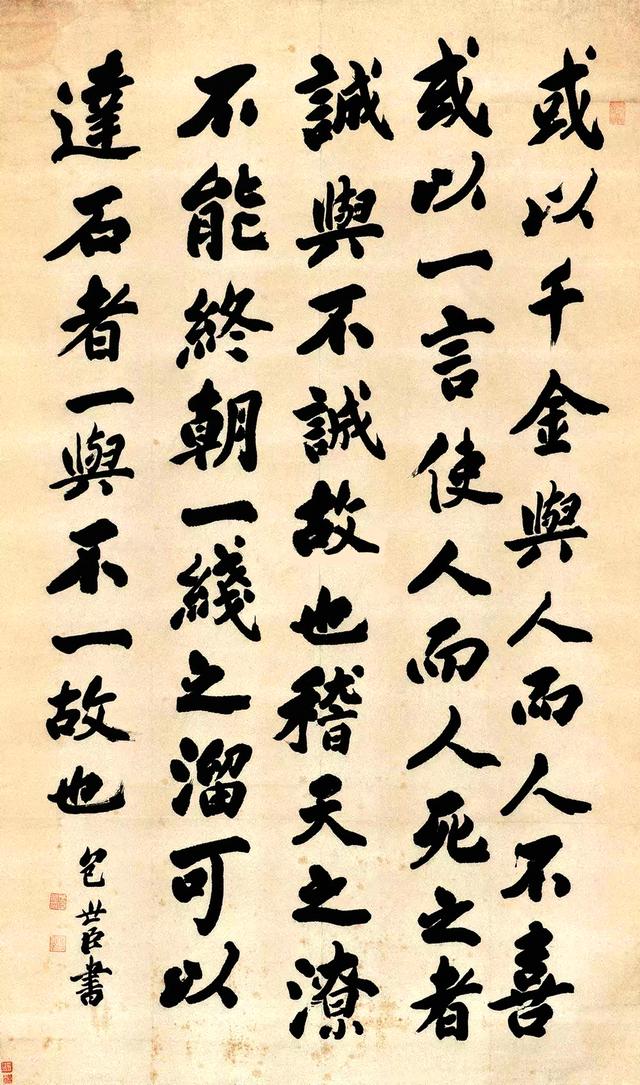 或以千金與人而人不喜
或以一言使人而人死之者
誠與不誠故也稽天之潦
不能終朝一綫之溜可以
達石者一與不一故也
包世臣書